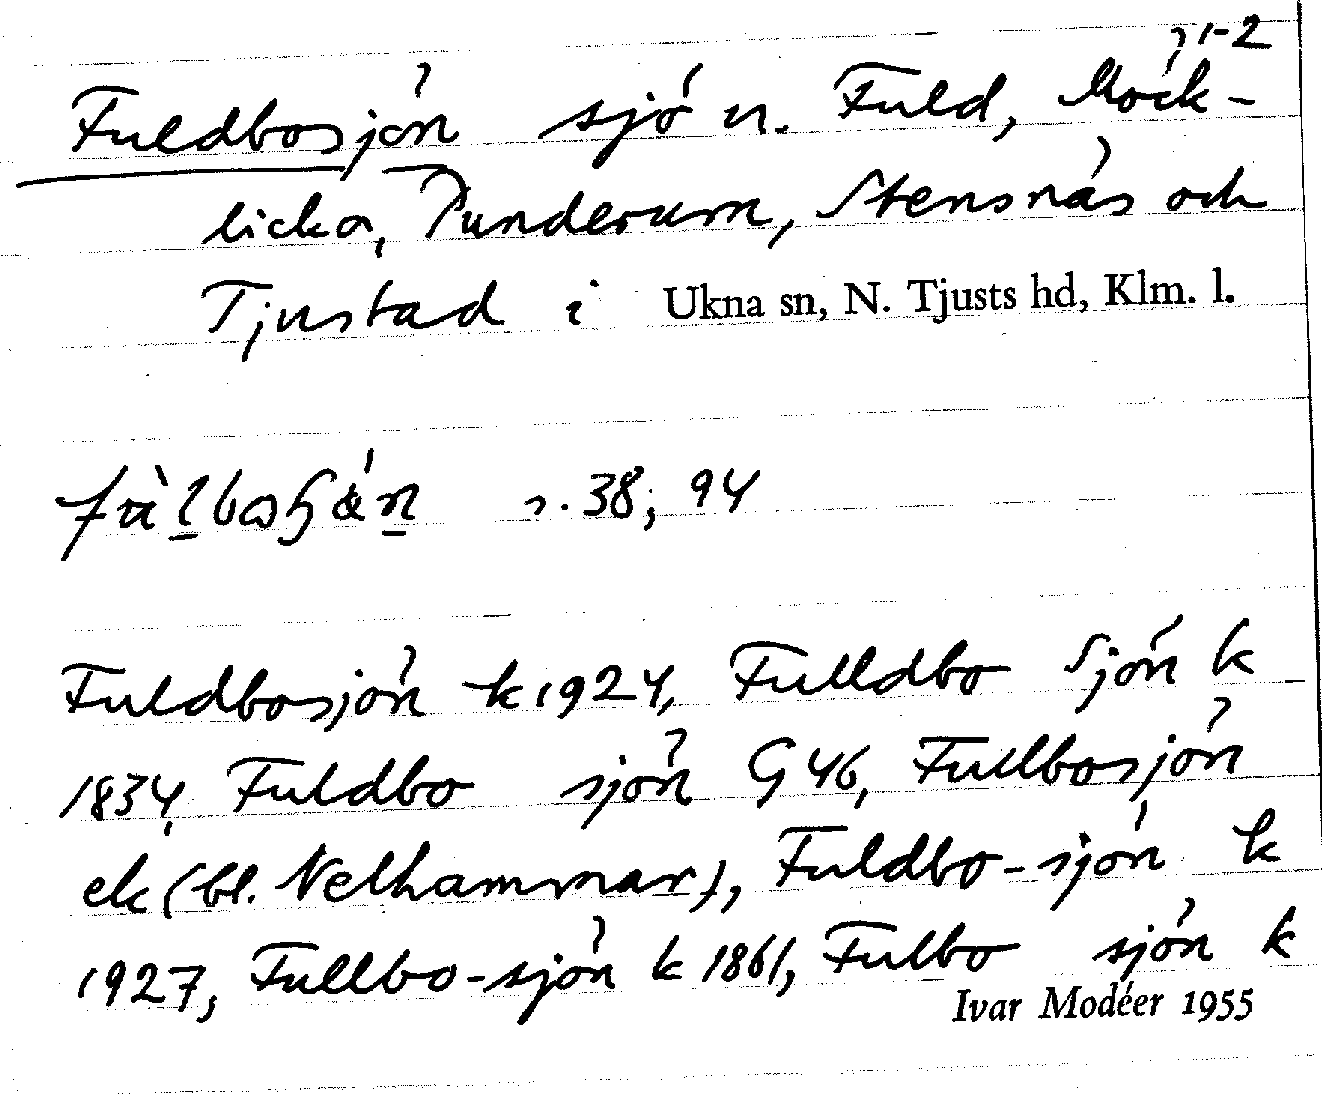 1-2
Fuldbosjön sjö n. Fuld, Möck-
licka, Punderum, Stensnäs och
Tjustad i Ukna sn, N. Tjusts hd, Klm. l.
s. 38; 94
Fuldbosjön k 1924, Fulldbo Sjön k
1834, Fuldbo sjön G 46, Fullbosjön
ek (bl. Nelhammar), Fuldbo-sjön k
1927, Fullbo-sjön k 1861, Fulbo sjön k
Ivar Modéer 1955